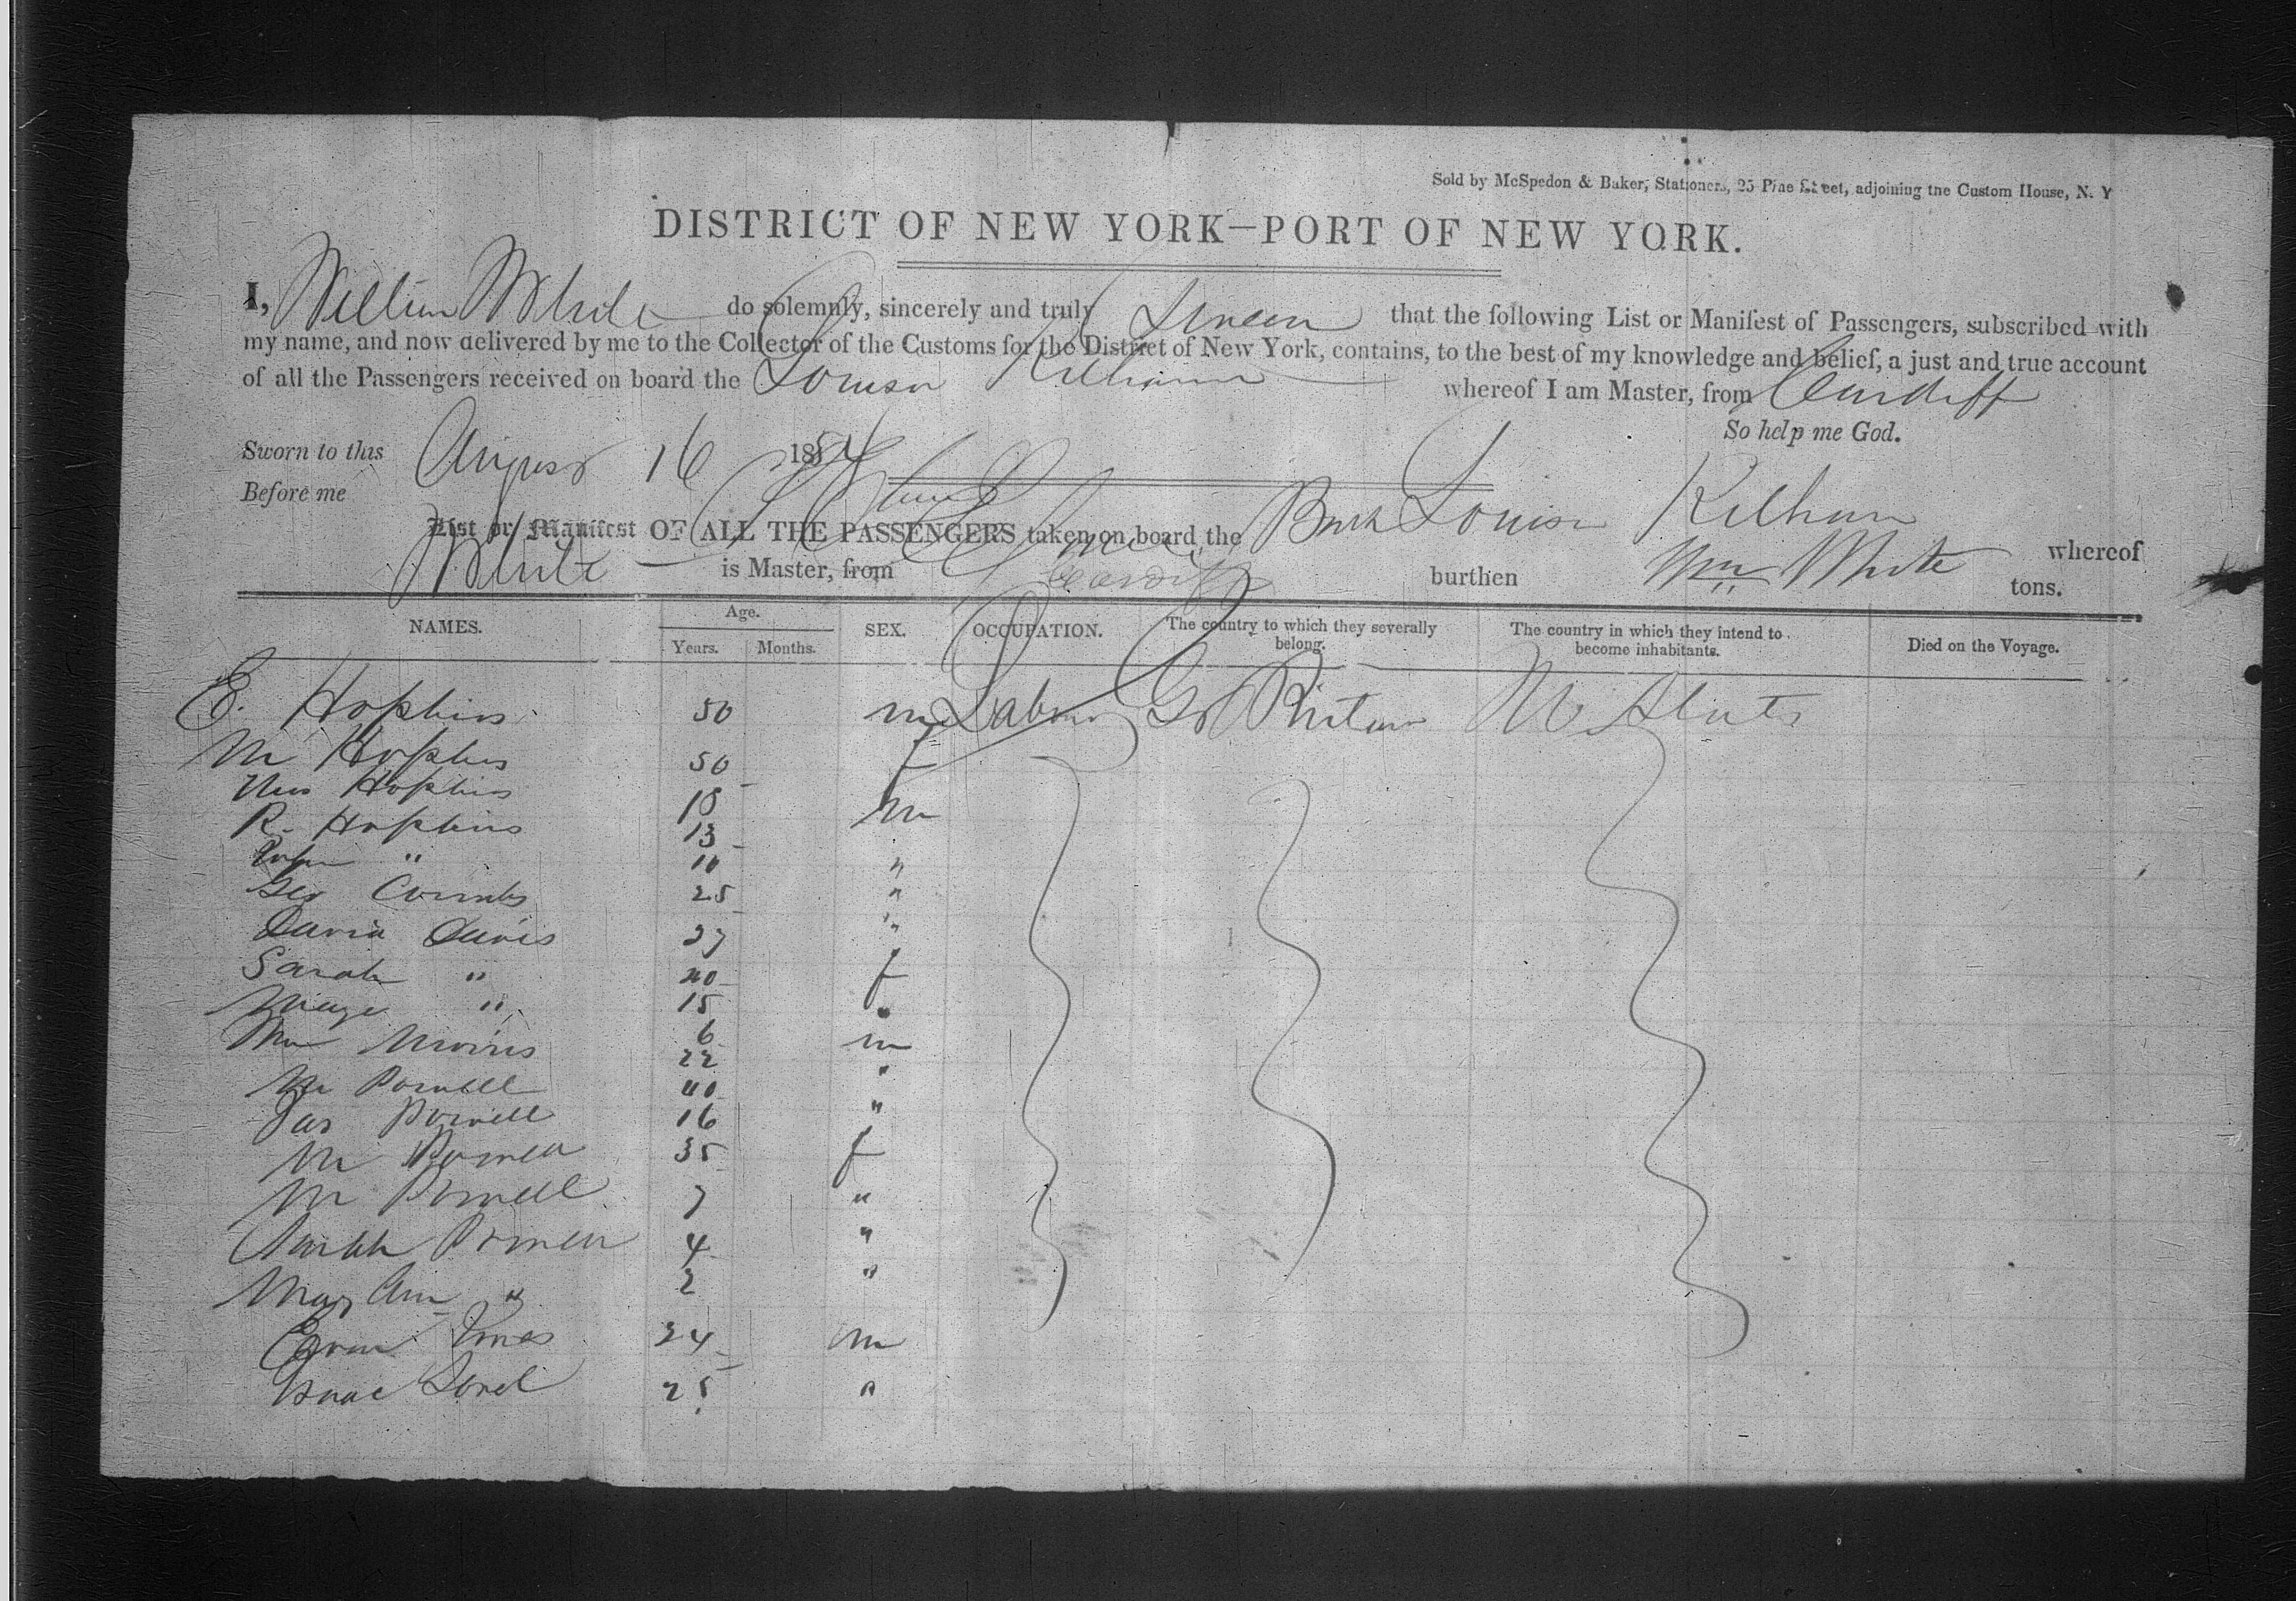 Sold by McSpedon & Baker, Stationers, 25 Pine Street, adjoining the Custom House, N. Y
DISTRICT OF NEW YORK—PORT OF NEW YORK.
I, William White do solemnly, sincerely and truly Swear that the following List or Manifest of Passengers, subscribed with
my name, and now delivered by me to the Collector of the Customs for the District of New York, contains, to the best of my knowledge and belief, a just and true account
of all the Passengers received on board the Louisa Kilham whereof I am Master, from Cardiff
So help me God.
Sworn to this August 16 1854
Before me
List or Manifest OF ALL THE PASSENGERS taken on board the Bark Louisa Kilham whereof
White is Master, from Cardiff burthen Wm White tons.
NAMES. Age. Years. Months. SEX. OCCUPATION. The country to which they severally belong. The country in which they intend to become inhabitants. Died on the Voyage.
E. Hopkins 50 m Labour Gr Britain U States
M Hopkins 50 f
Hopkins 18 m
R. Hopkins 13
John " 10 "
Geo Coombs 25 "
David Davis 27 "
Sarah " 40 f
" 15 "
Wm Morris 6 m
22 "
M Powell 40
Jas Powell 16 "
M Powell 35 f
M Powell 7 "
Powell 4 "
Mary Ann " 2 "
Evan Jones 24 m
Isaac 25 "